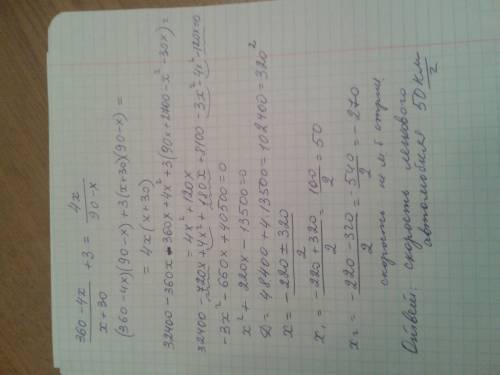 (360-4x)/(x+30) + 3 = 4x/(90-x)
(360-4x)(90-x)+3(x+30)(90-x)=
=4x(x+30)
32400-360x-360x+4x²+3(90x+2700-x²-30x)=
=4x²+120x
32400-720x+4x²+180x+8100-3x²-4x²-120x=0
-3x²-660x+40500=0
x²+220x-13500=0
D=48400+4·13500=102400=320²
x=(-220±320)/2
x₁=(-220+320)/2=100/2=50
x₂=(-220-320)/2=-540/2=-270
скорость не м.б отриц.
Ответ: скорость легкового
автомобиля 50 км/ч